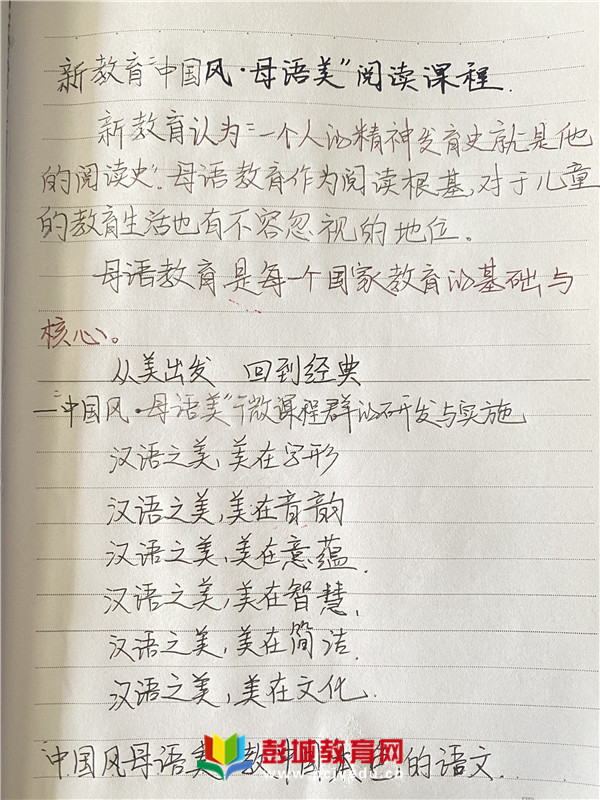 新教育“中国风·母语美”阅读课程.
新教育认为:“一个人的精神发育史就是他
的阅读史”.母语教育作为阅读根基,对于儿童
的教育生活也有不容忽视的地位。
母语教育是每一个国家教育的基础与
核心。
从美出发 回到经典
—“中国风·母语美”微课程群的研发与实施
汉语之美,美在字形
汉语之美,美在音韵
汉语之美,美在意蕴.
汉语之美,美在智慧.
汉语之美,美在简洁.
汉语之美,美在文化.
中国风母语美 教中国本色的语文.
彭城教育网